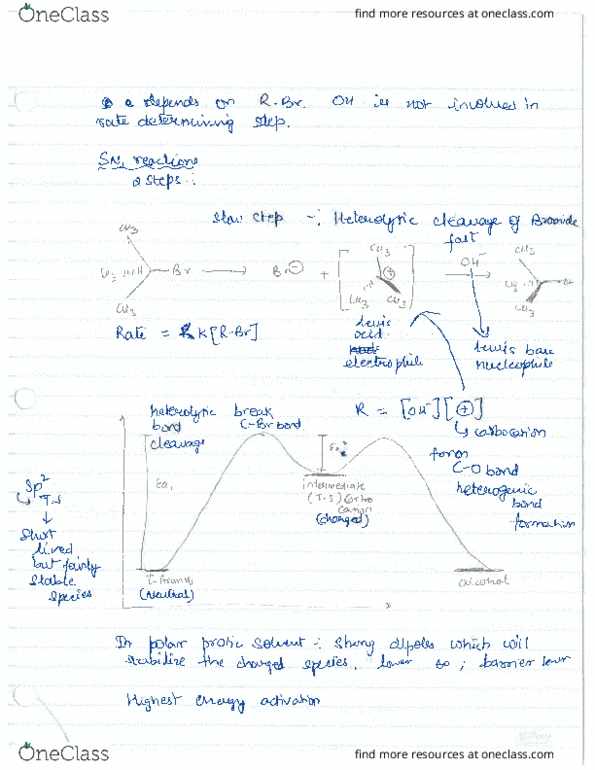 OneClass
find more resources at oneclass.com
depends on R-Br. OH is not involved in
rate determining step.
SN1 reactions
2 steps :
slow step : Heterolytic cleavage of Bromide
fast
CH3
CH3
OH-
CH3
Br
Br ⊖ + ⊕
CH3
CH3 CH3
CH3
Rate = K[R-Br]
Lewis
acid
electrophile
Lewis base
nucleophile
heterolytic
bond
cleavage
break
C-Br bond
R = [OH-] [⊕]
↳ carbocation
forms
C-O bond
heterogenic
bond
formation
Ea1
Ea2
intermediate
(T.S)
(charged)
Sp2
T.S
↓
Short
lived
but fairly
stable
species
(Neutral)
alcohol
In polar protic solvent : strong dipoles which will
stabilize the charged species. lower so ; barrier lower
Highest energy activation
OneClass
find more resources at oneclass.com